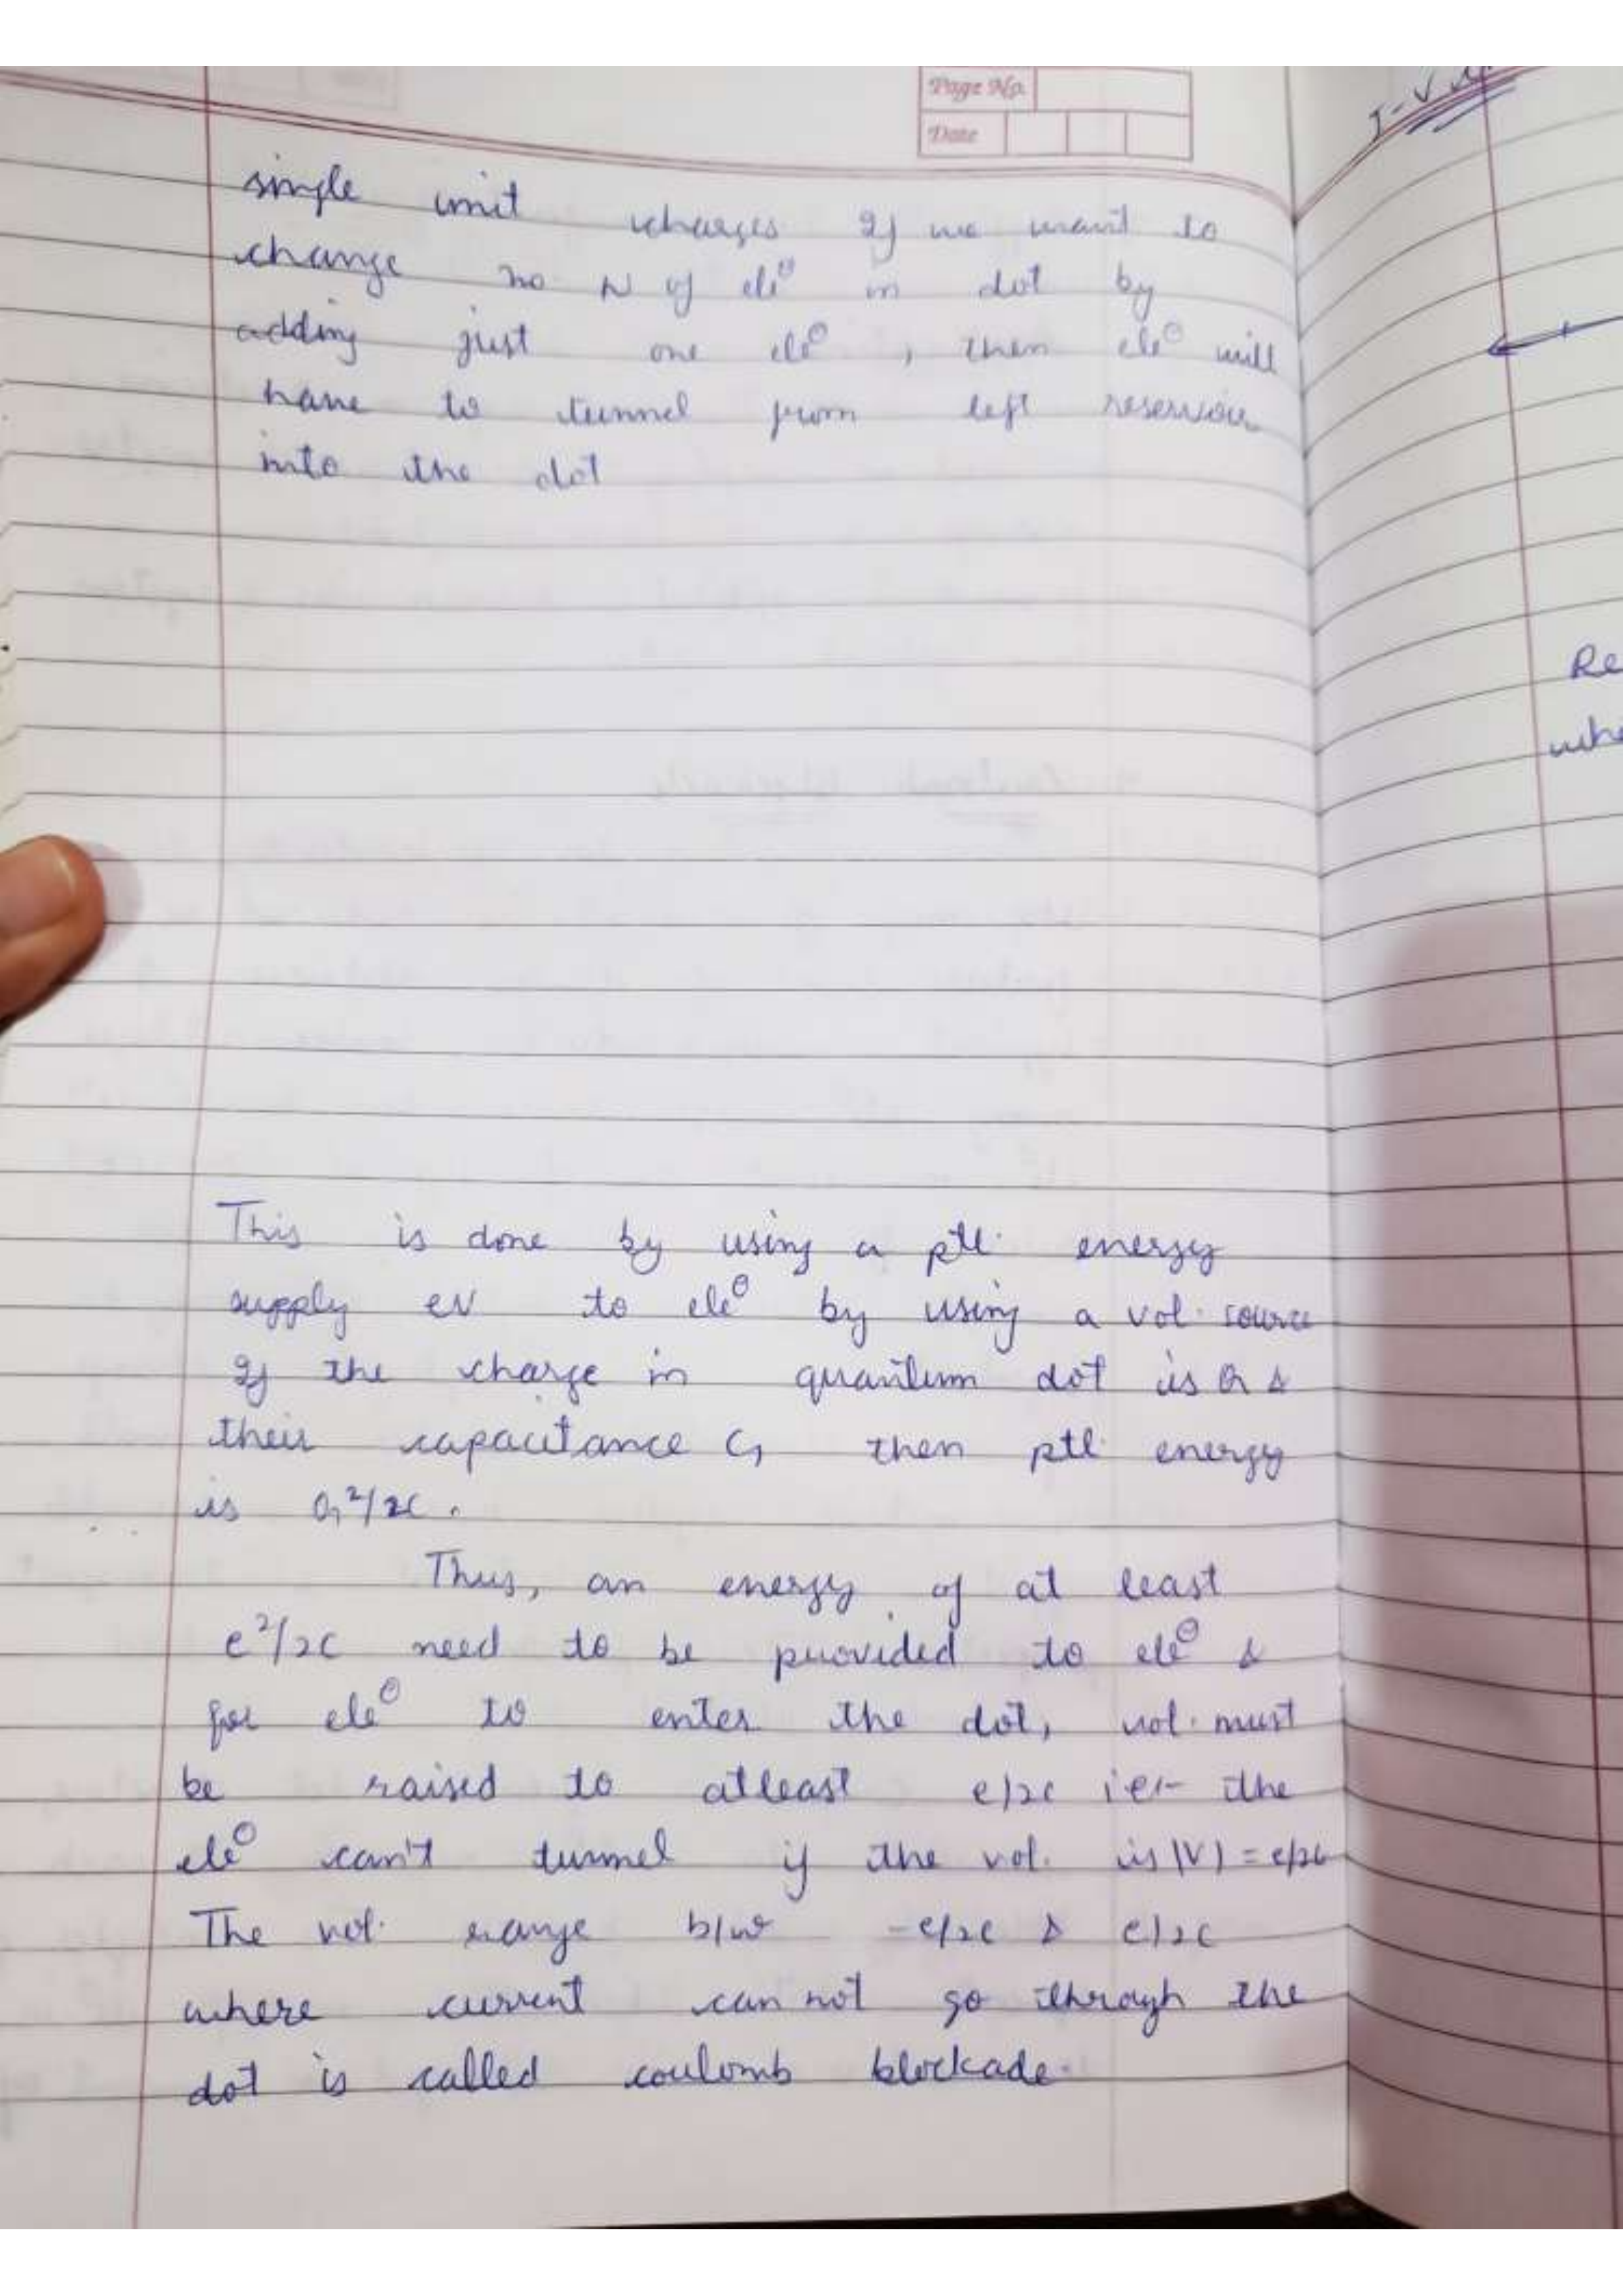 Page No.
Date
single unit charges If we want to
change no N of ele⊖ in dot by
adding just one ele⊖, then ele⊖ will
have to tunnel from left reservoir
into the dot
This is done by using a ptl. energy
supply eV to ele⊖ by using a vol. source
If the charge in quantum dot is Q &
their capacitance C, then ptl. energy
is Q²/2C.
Thus, an energy of at least
e²/2C need to be provided to ele⊖ &
for ele⊖ to enter the dot, vol. must
be raised to atleast e/2C i.e:- the
ele⊖ can't tunnel if the vol. is |V| = e/2C
The vol. range b/w -e/2C & e/2C
where current can not go through the
dot is called coulomb blockade.
I-V
Re
whe